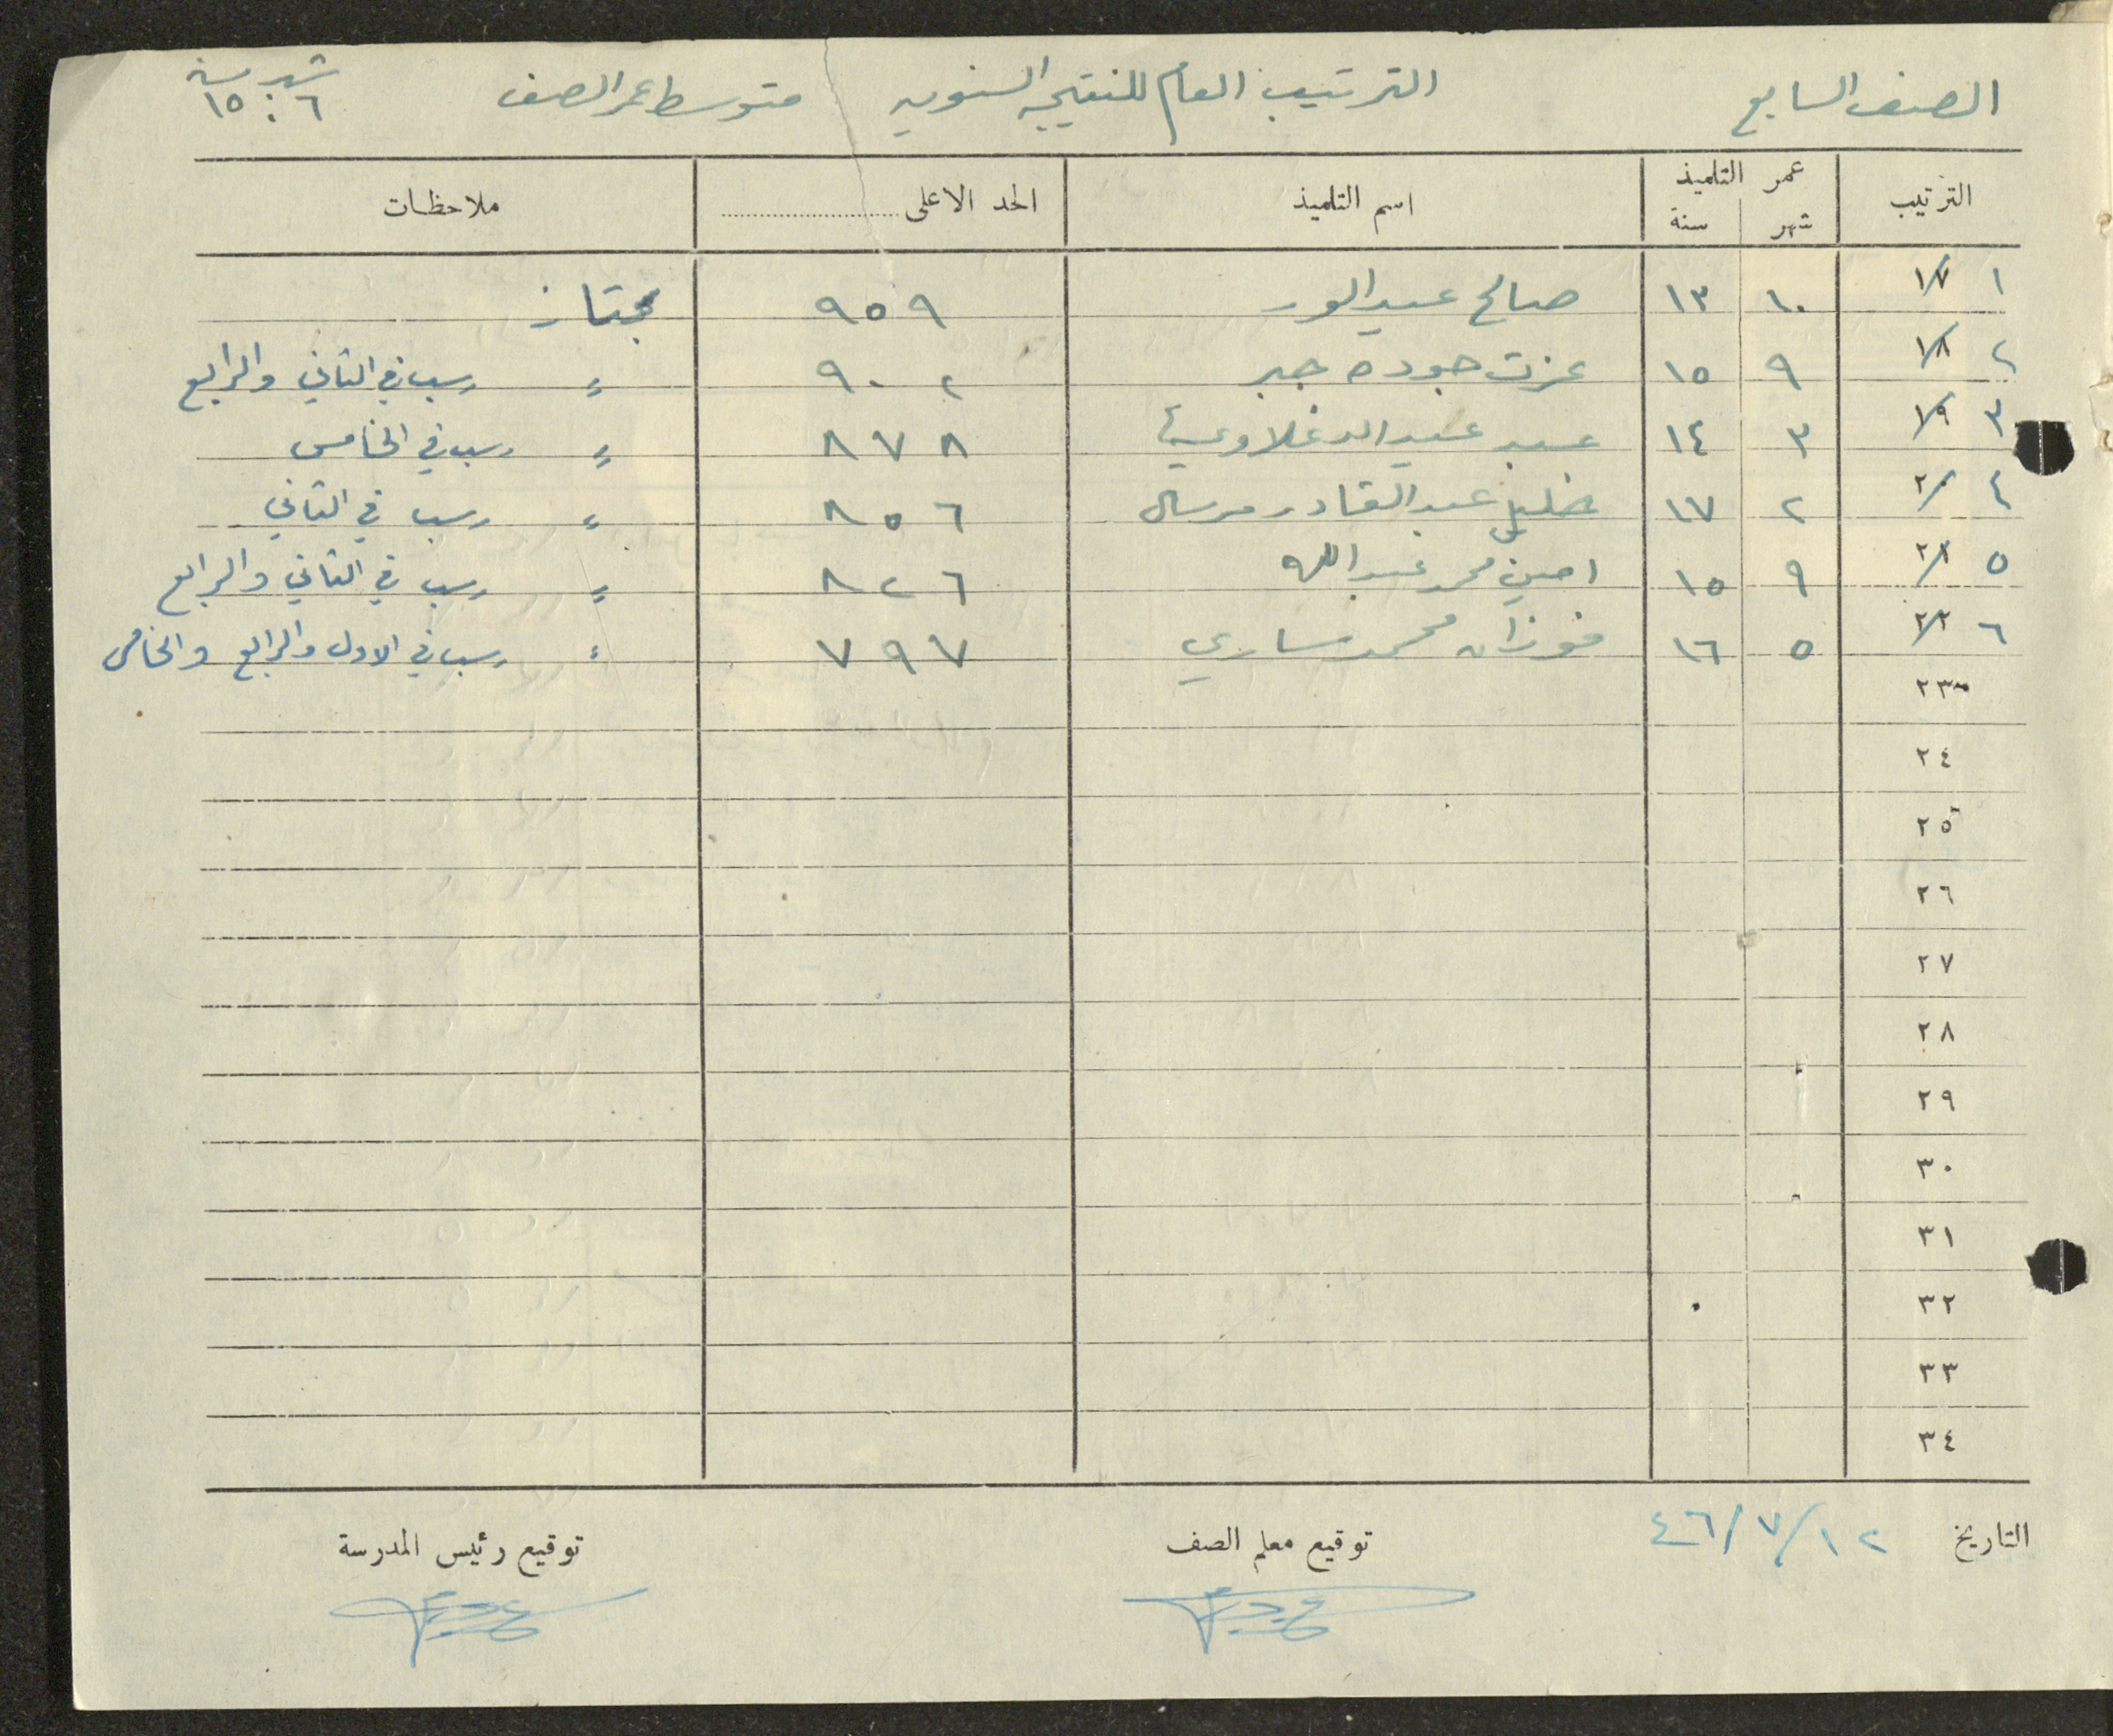 الصف السابع الترتيب العام للنتيجة السنوية متوسط عمر الصف شهر سنة
٦ : ١٥
الترتيب عمر التلميذ اسم التلميذ الحد الاعلى .................... ملاحظات
شهر سنة
١ ١٧ ١٠ ١٣ صالح عبد ٩٥٩ مجتاز
٢ ١٨ ٩ ١٥ عزت جوده جبر ٩٠٢ " رسب في الثاني والرابع
٣ ١٩ ٣ ١٤ عبد عبد ٨٧٨ " رسب في الخامس
٤ ٢٠ ٢ ١٧ خليل عبد القادر مرسال ٨٥٦ " رسب في الثاني
٥ ٢١ ٩ ١٥ امين محمد عبد الله ٨٢٦ " رسب في الثاني والرابع
٦ ٢٢ ٥ ١٦ فوزان محمد ساري ٧٩٧ " رسب في الاول والرابع والخامس
٢٣
٢٤
٢٥
٢٦
٢٧
٢٨
٢٩
٣٠
٣١
٣٢
٣٣
٣٤
التاريخ ١٢/٧/٤٦ توقيع معلم الصف توقيع رئيس المدرسة